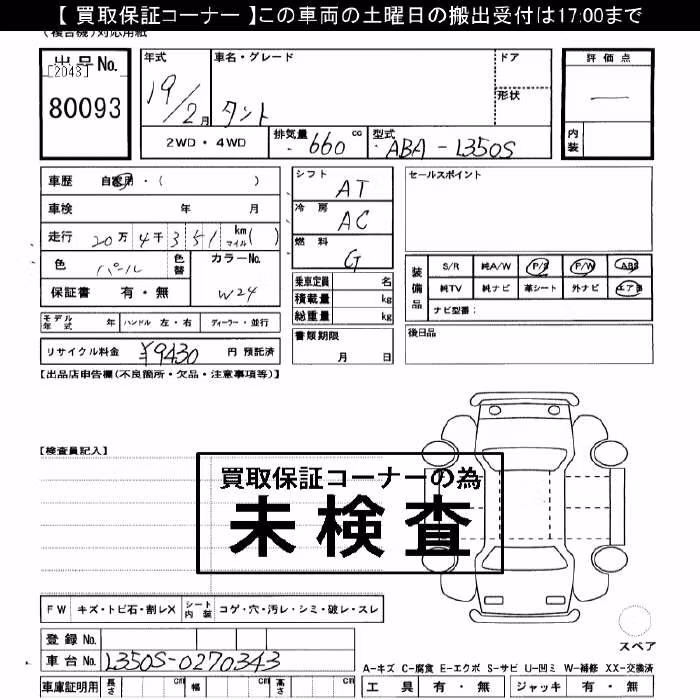 【 買取保証コーナー 】この車両の土曜日の搬出受付は17:00まで
(複合機)対応用紙
出品No.
[2043]
80093
年式
19/2月
車名・グレード
タント
ドア
形状
評価点
―
内装
2WD・4WD
排気量 660 cc
型式 ABA-L350S
車歴 自家用・( )
車検 年 月
走行 20万4千351 km マイル( )
色 パール
色替
カラーNo.
W24
保証書 有・無
シフト AT
冷房 AC
燃料 G
乗車定員 名
積載量 kg
総重量 kg
セールスポイント
装備品
S/R 純A/W P/S P/W ABS
純TV 純ナビ 革シート 外ナビ エアB
ナビ型番:
モデル年式 年 ハンドル 左・右 ディーラー・並行
リサイクル料金 ¥9430 円 預託済
書類期限
月 日
後日品
【出品店申告欄(不良箇所・欠品・注意事項等)】
【検査員記入】
買取保証コーナーの為
未検査
FW キズ・トビ石・割レX シート内装 コゲ・穴・汚レ・シミ・破レ・スレ
登録No.
車台No. L350S-0270343
車庫証明用 長さ cm 幅 cm 高さ cm
スペア
A-キズ C-腐食 E-エクボ S-サビ U-凹ミ W-補修 XX-交換済
工具 有・無 ジャッキ 有・無